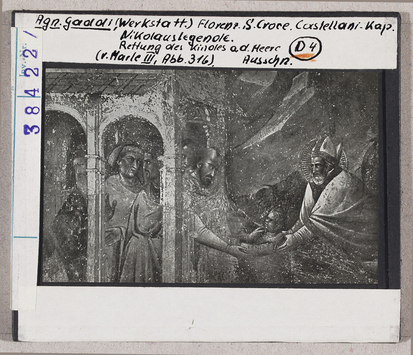 Agn. Gaddi (Werkstatt.) Florenz. S. Croce. Castellani-Kap.
Nikolauslegende.
Rettung des Kindes a.d. Meere D4
(v. Marle III, Abb. 316) Ausschn.
38422